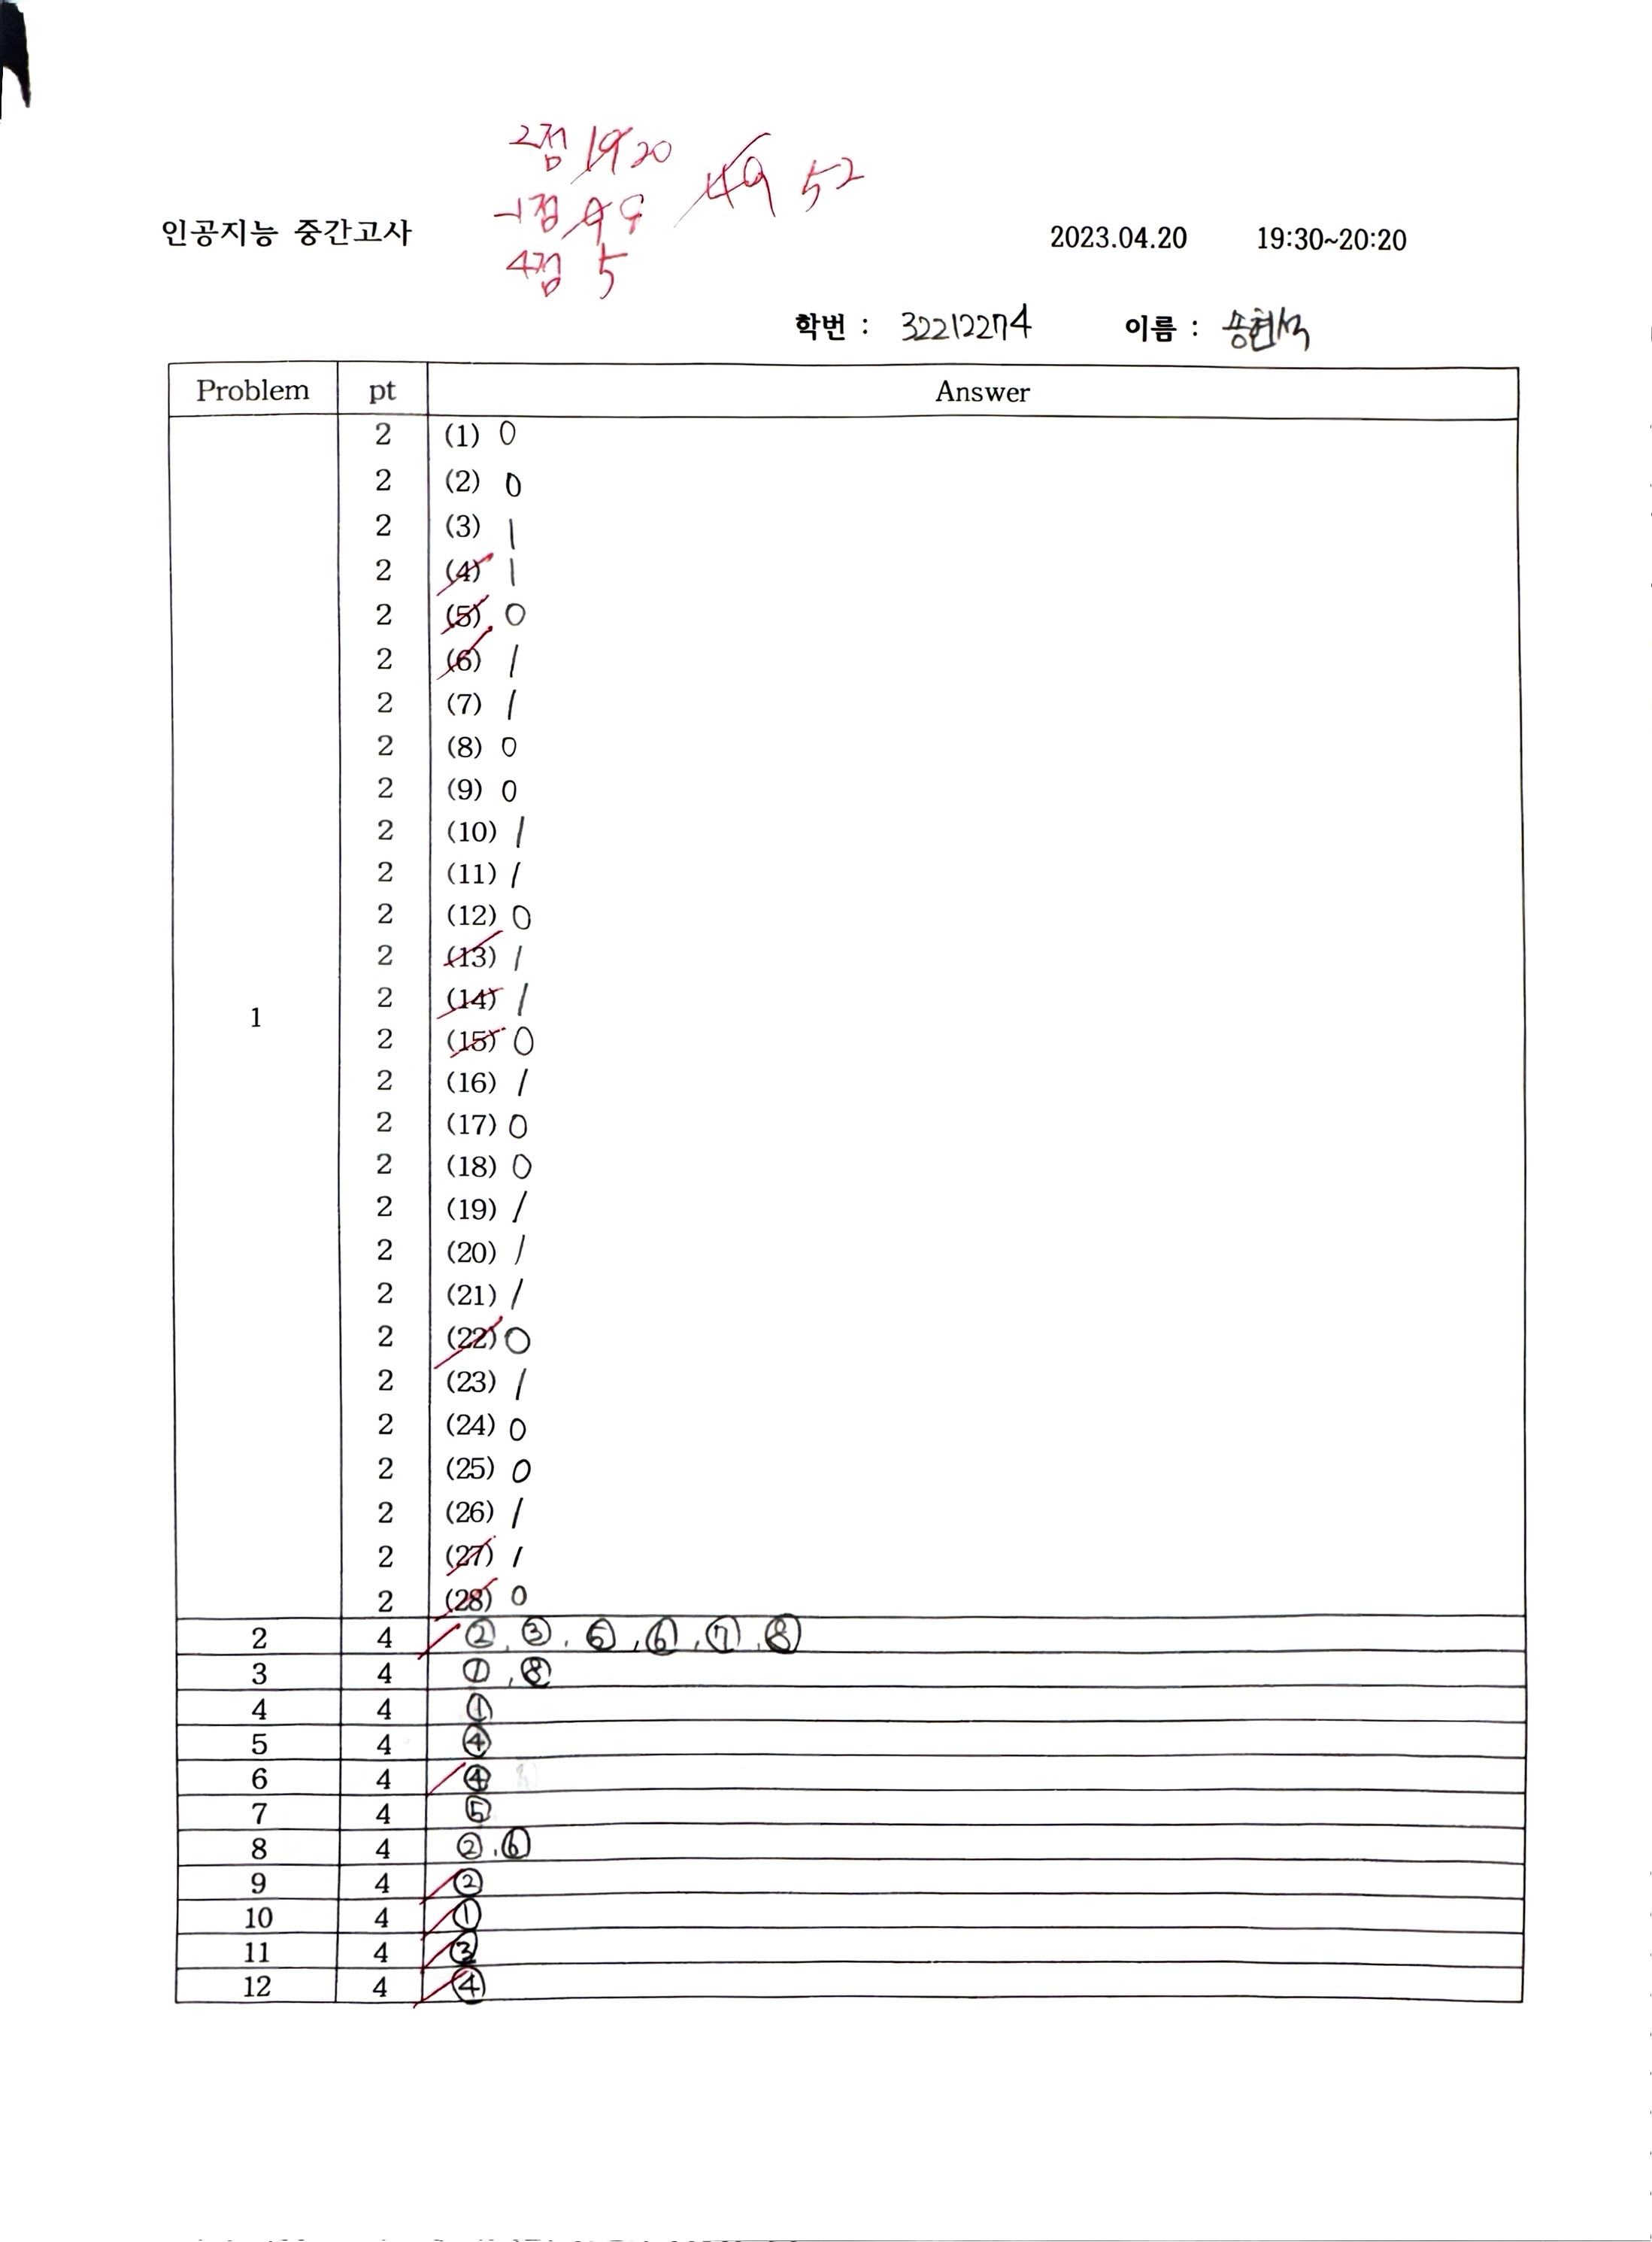 2점 19 20
49 52
-1점 9 8
4점 5
인공지능 중간고사 2023.04.20 19:30~20:20
학번 : 32212274 이름 : 송현석
Problem pt Answer
2 (1) 0
2 (2) 0
2 (3) 1
2 (4) 1
2 (5) 0
2 (6) 1
2 (7) 1
2 (8) 0
2 (9) 0
2 (10) 1
2 (11) 1
2 (12) 0
2 (13) 1
1 2 (14) 1
2 (15) 0
2 (16) 1
2 (17) 0
2 (18) 0
2 (19) 1
2 (20) 1
2 (21) 1
2 (22) 0
2 (23) 1
2 (24) 0
2 (25) 0
2 (26) 1
2 (27) 1
2 (28) 0
2 4 ②, ③, ⑤, ⑥, ⑦, ⑧
3 4 ①, ⑧
4 4 ①
5 4 ④
6 4 ④
7 4 ⑤
8 4 ②, ⑥
9 4 ②
10 4 ①
11 4 ③
12 4 ④